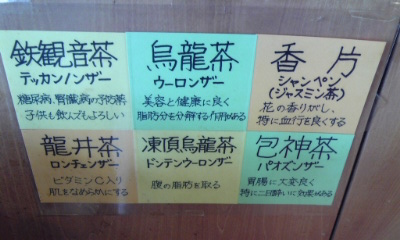 鉄観音茶
テッカンノンザー
糖尿病、腎臓病の予防薬
子供も飲んでもよろしい
烏龍茶
ウーロンザー
美容と健康に良く
脂肪分を分解する作用がある
香片
シャンペン
(ジャスミン茶)
花の香りがし、
特に血行を良くする
龍井茶
ロンチェンザー
ビタミンC入り
肌をなめらかにする
凍頂烏龍茶
ドンテンウーロンザー
腹の脂肪を取る
包神茶
パオズンザー
胃腸に大変良く
特に二日酔いに効果がある